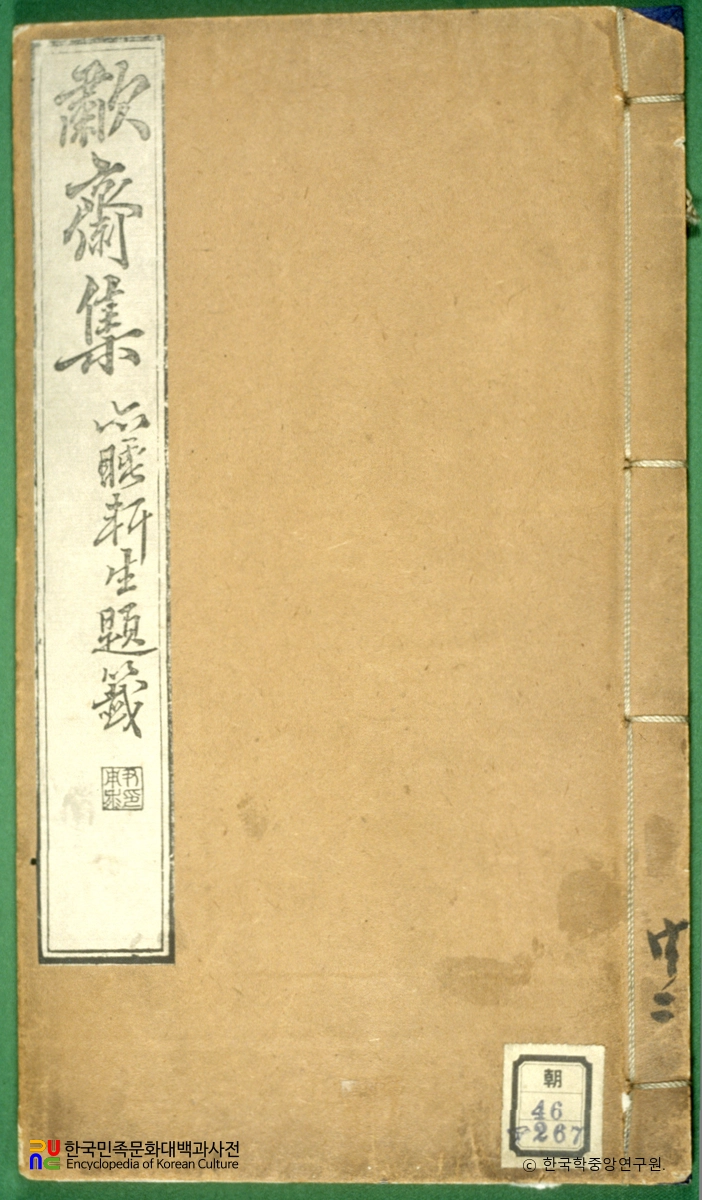 歗齋集
睡軒生題籤
共二
朝
46
267
한국민족문화대백과사전
Encyclopedia of Korean Culture
© 한국학중앙연구원